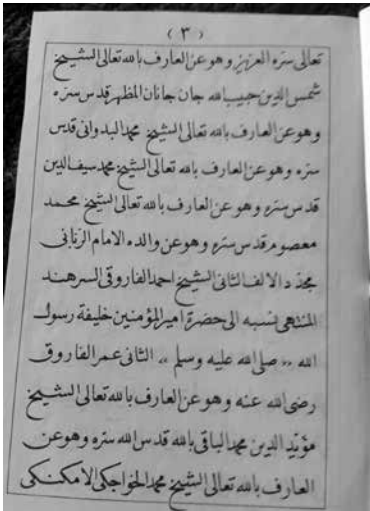 (٣)
تعالى سره العزيز وهو عن العارف بالله تعالى الشيخ
شمس الدين حبيب الله جان جانان المظهر قدس سره
وهو عن العارف بالله تعالى الشيخ محمد البدوانى قدس
سره وهو عن العارف بالله تعالى الشيخ محمد سيف الدين
قدس سره وهو عن العارف بالله تعالى الشيخ محمد
معصوم قدس سره وهو عن والده الامام الربانى
مجدد الالف الثانى الشيخ احمد الفاروقى السرهند
المنتهى نسبه الى حضرة امير المؤمنين خليفة رسول
الله ,, صلى الله عليه وسلم ,, الثانى عمر الفاروق
رضى الله عنه وهو عن العارف بالله تعالى الشيخ
مؤيد الدين محمد الباقى بالله قدس الله سره وهو عن
العارف بالله تعالى الشيخ محمد الخواجكى الامكنكى